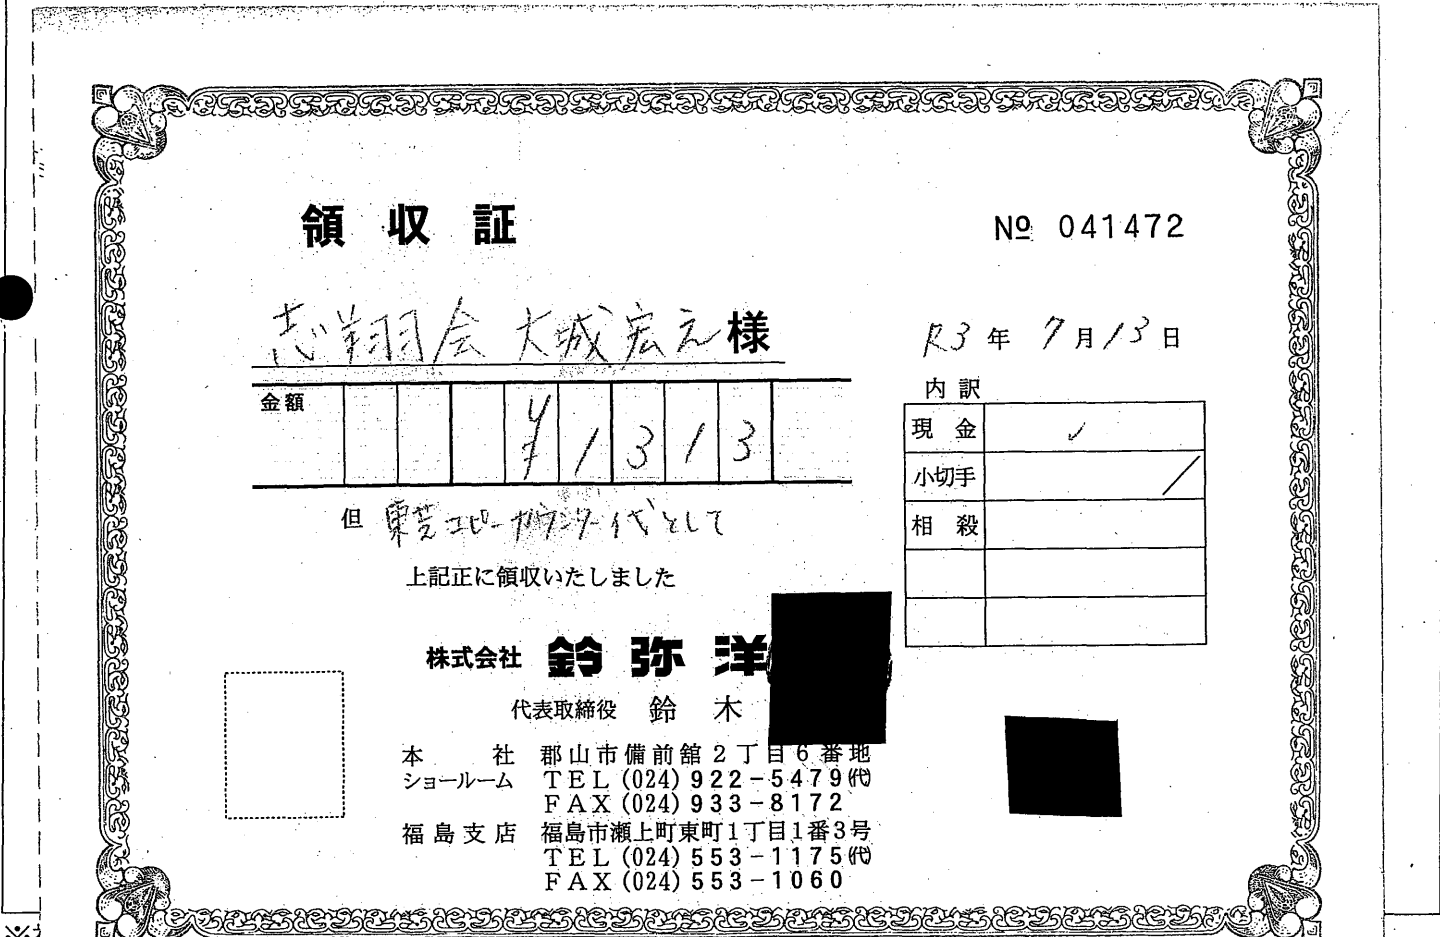 領収証
№ 041472
志翔会 大城宏之 様
R3年 7月13日
金額 ¥1313
内訳
現金 ✓
小切手
相殺
但 東芝コピーカウンター代として
上記正に領収いたしました
株式会社 鈴弥洋
代表取締役 鈴木
本社 郡山市備前舘2丁目6番地
ショールーム TEL(024)922-5479(代)
FAX(024)933-8172
福島支店 福島市瀬上町東町1丁目1番3号
TEL(024)553-1175(代)
FAX(024)553-1060